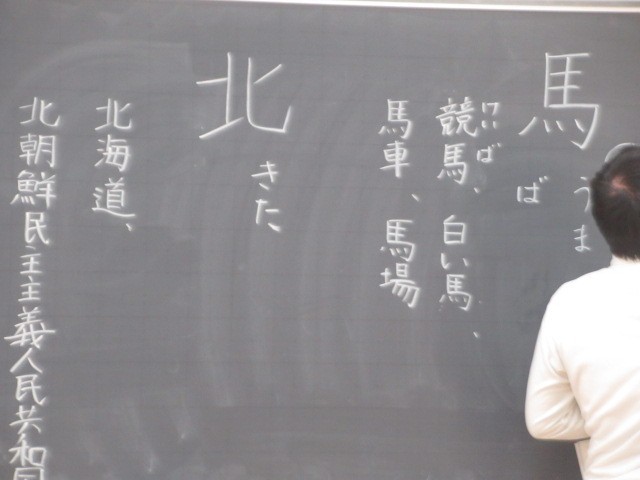 馬
うま
ば
けいば
競馬、白い馬、
馬車、馬場
北
きた、
北海道、
北朝鮮民主主義人民共和国